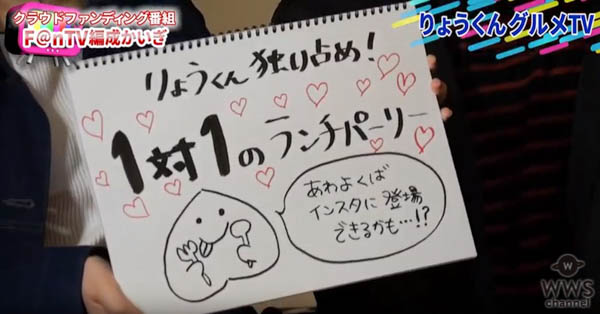 クラウドファンディング番組
F@nTV編成かいぎ
りょうくんグルメTV
りょうくん 独り占め!
1対1のランチパーリー
あわよくば
インスタに登場
できるかも…!?
W
WWS
channel